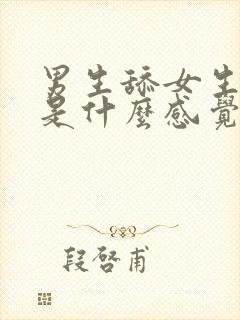 男生舔女生
是什麼感覺
段啓甫